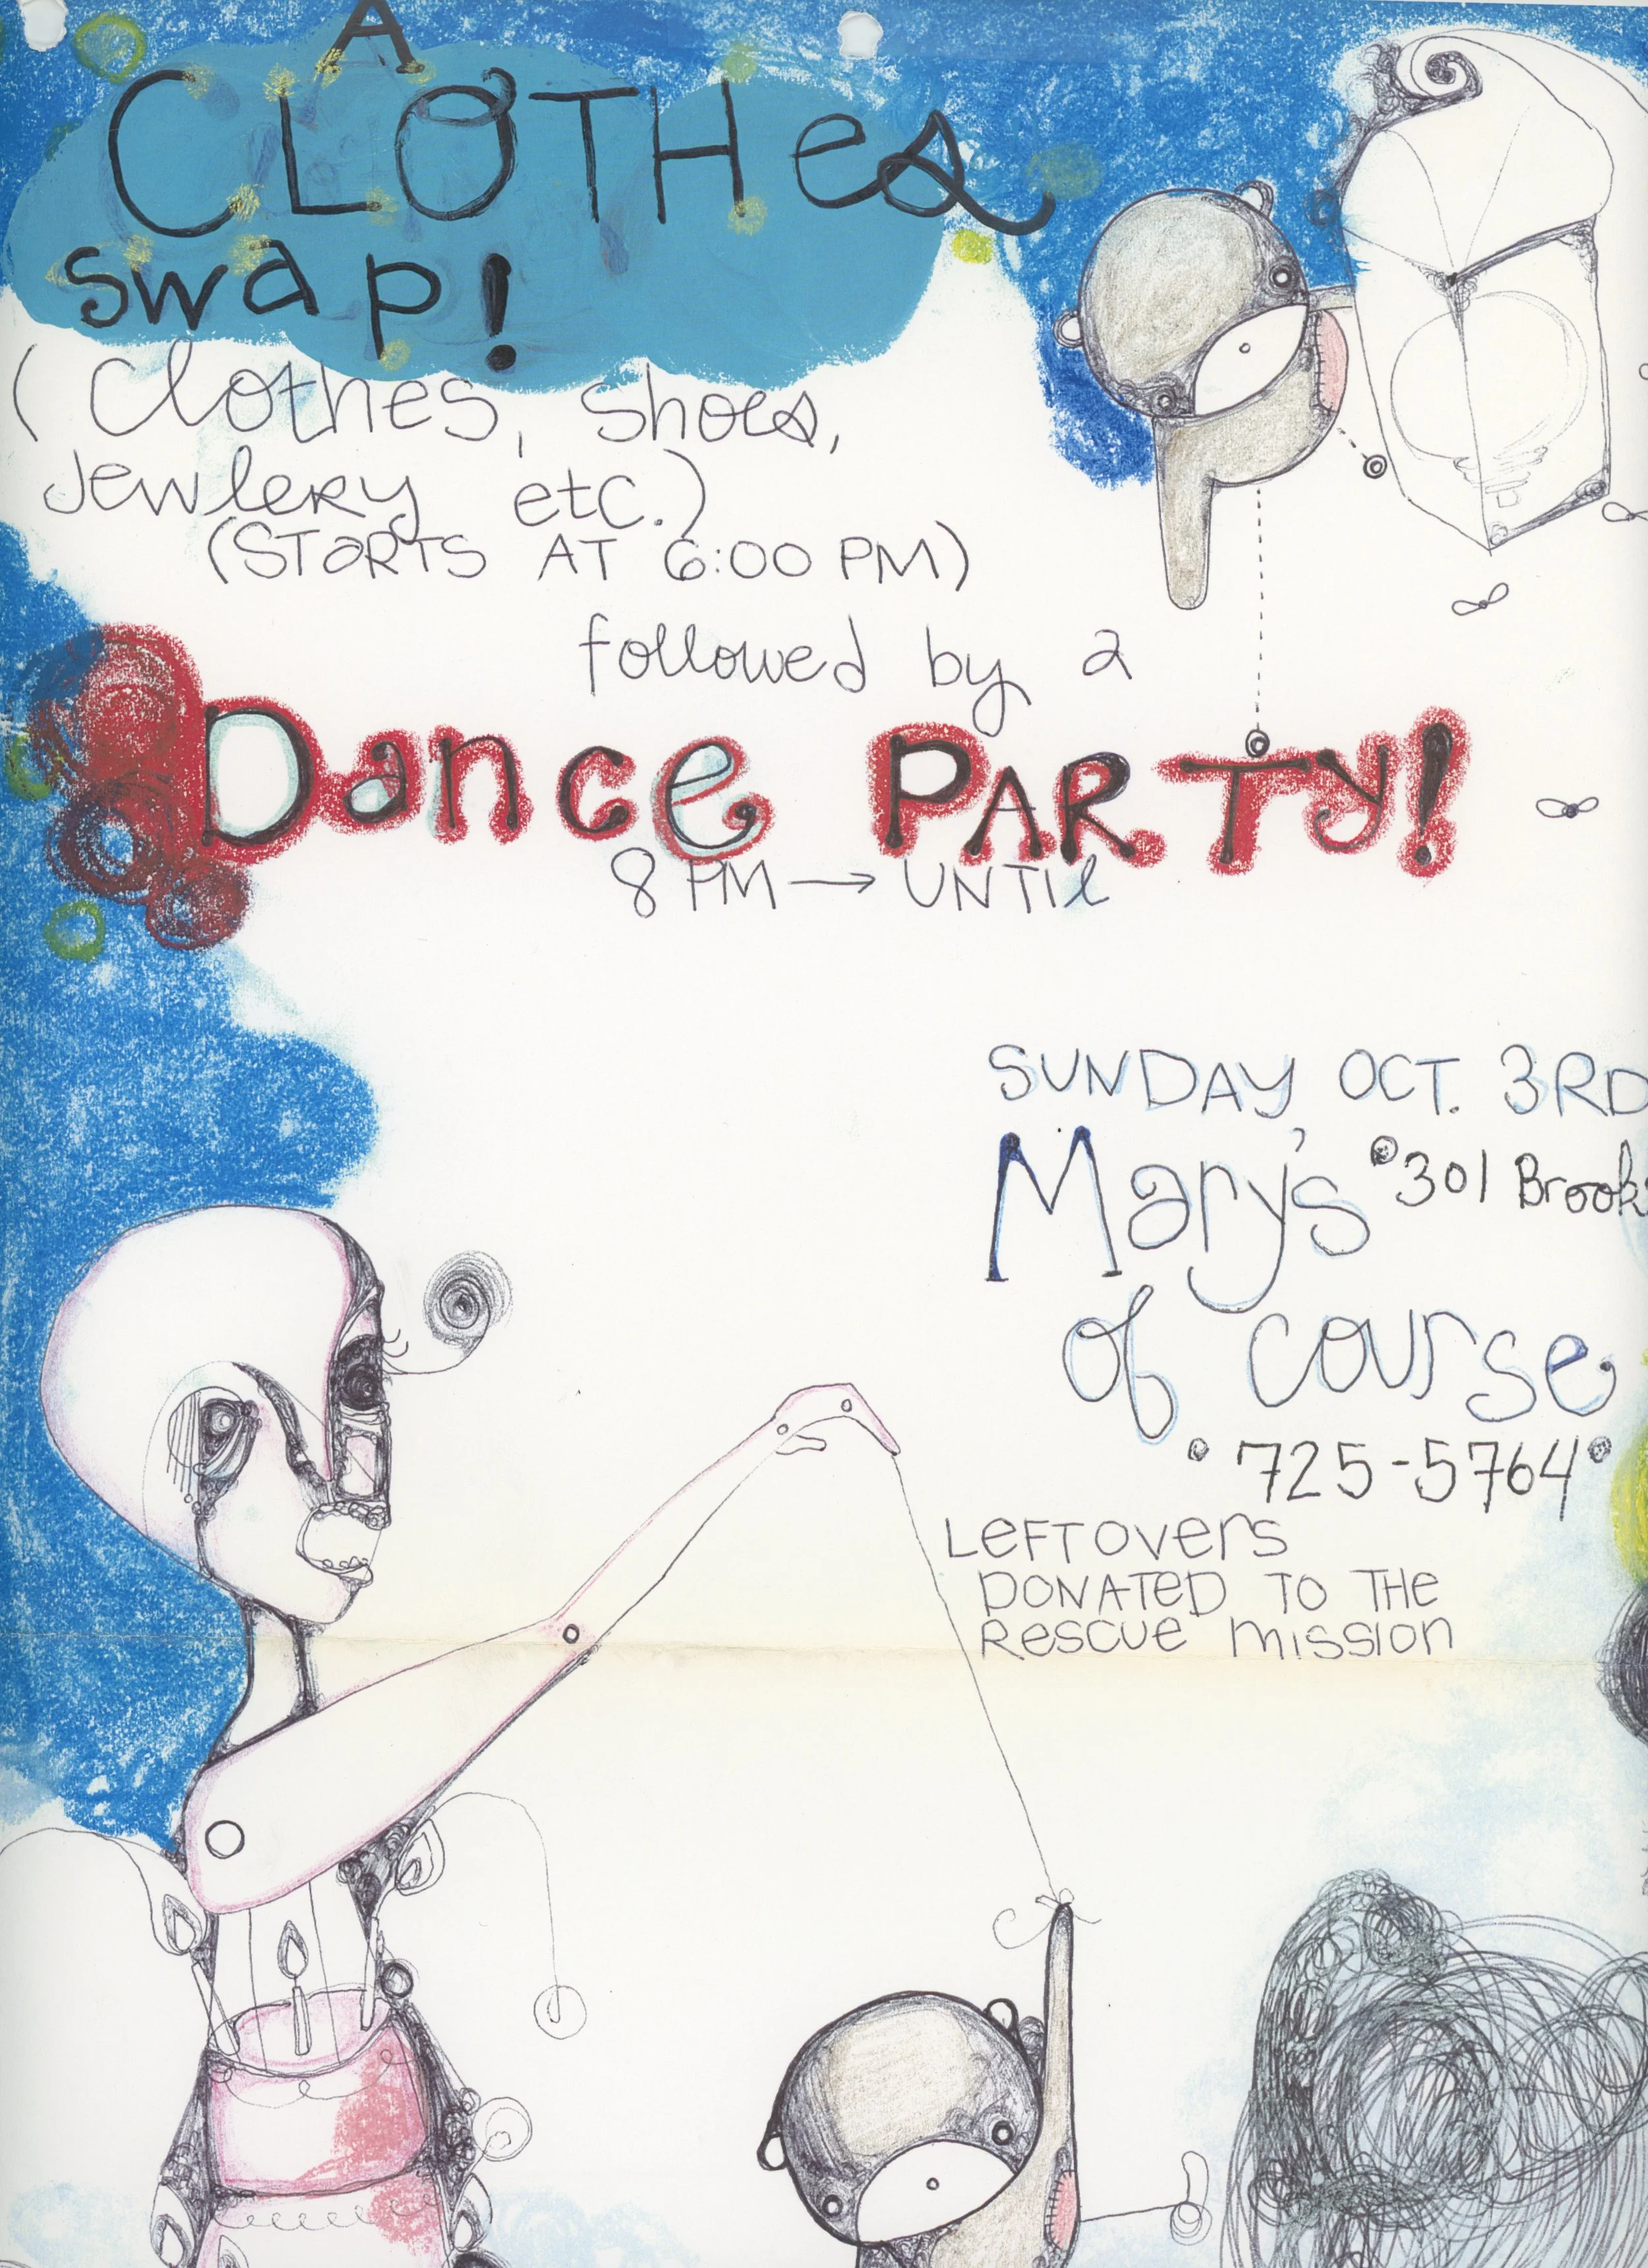 A
CLOTHes
swap!
(Clothes, shoes,
Jewlery etc.)
(STaRTS AT 6:00 PM)
followed by a
Dance PARTy!
8 PM → UNTIl
SUNDAY OCT. 3RD
Mary's 301 Brook
of course
725-5764
LeFTOvers
DONATED TO THe
Rescue mission